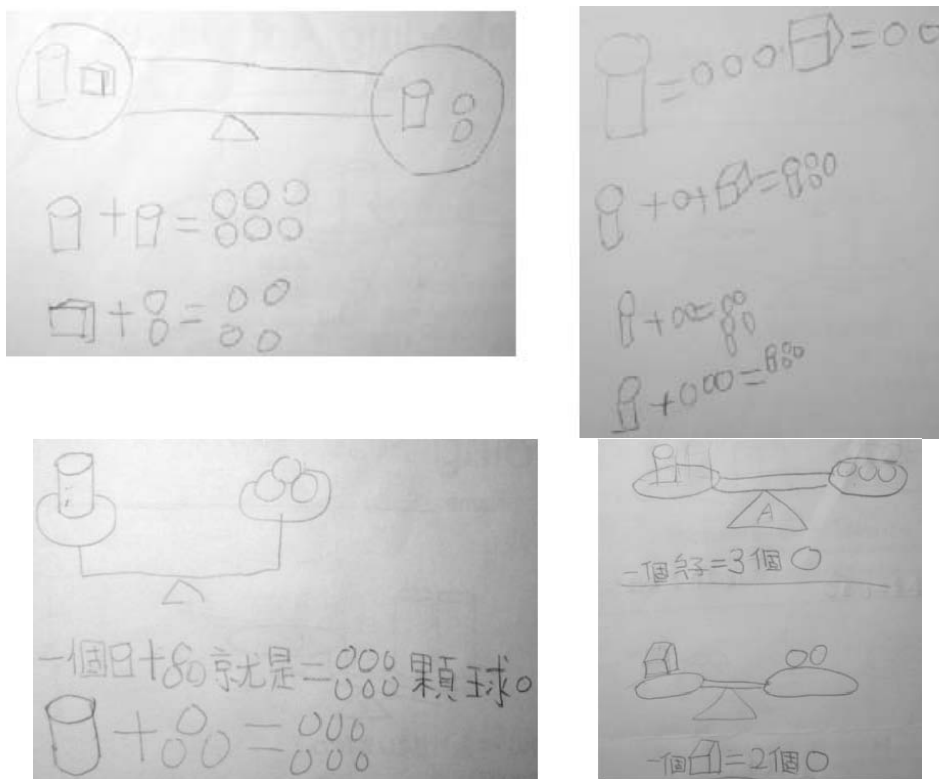 + = ○○○○○○
+ ○○ = ○○○○
= ○○○ = ○○
+ ○ + = ○○○
+ ○○ =
+ ○○○ =
一個 + ○○○ 就是 = ○○○○○○ 顆球。
+ ○○○ = ○○○○○○
A
一個 = 3個○
一個 = 2個○